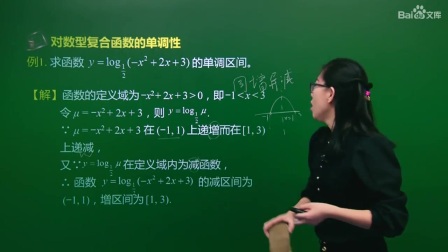 Bai百度文库
对数型复合函数的单调性
例1. 求函数 y=log_{1/2}(-x²+2x+3)的单调区间。
【解】函数的定义域为-x²+2x+3>0，即-1<x<3
令 μ=-x²+2x+3，则 y=log_{1/2}μ,
∵ μ=-x²+2x+3 在(-1,1)上递增而在[1,3)
上递减，
又∵ y=log_{1/2}μ 在定义域内为减函数，
∴ 函数 y=log_{1/2}(-x²+2x+3) 的减区间为
(-1,1)，增区间为[1,3).
同增异减